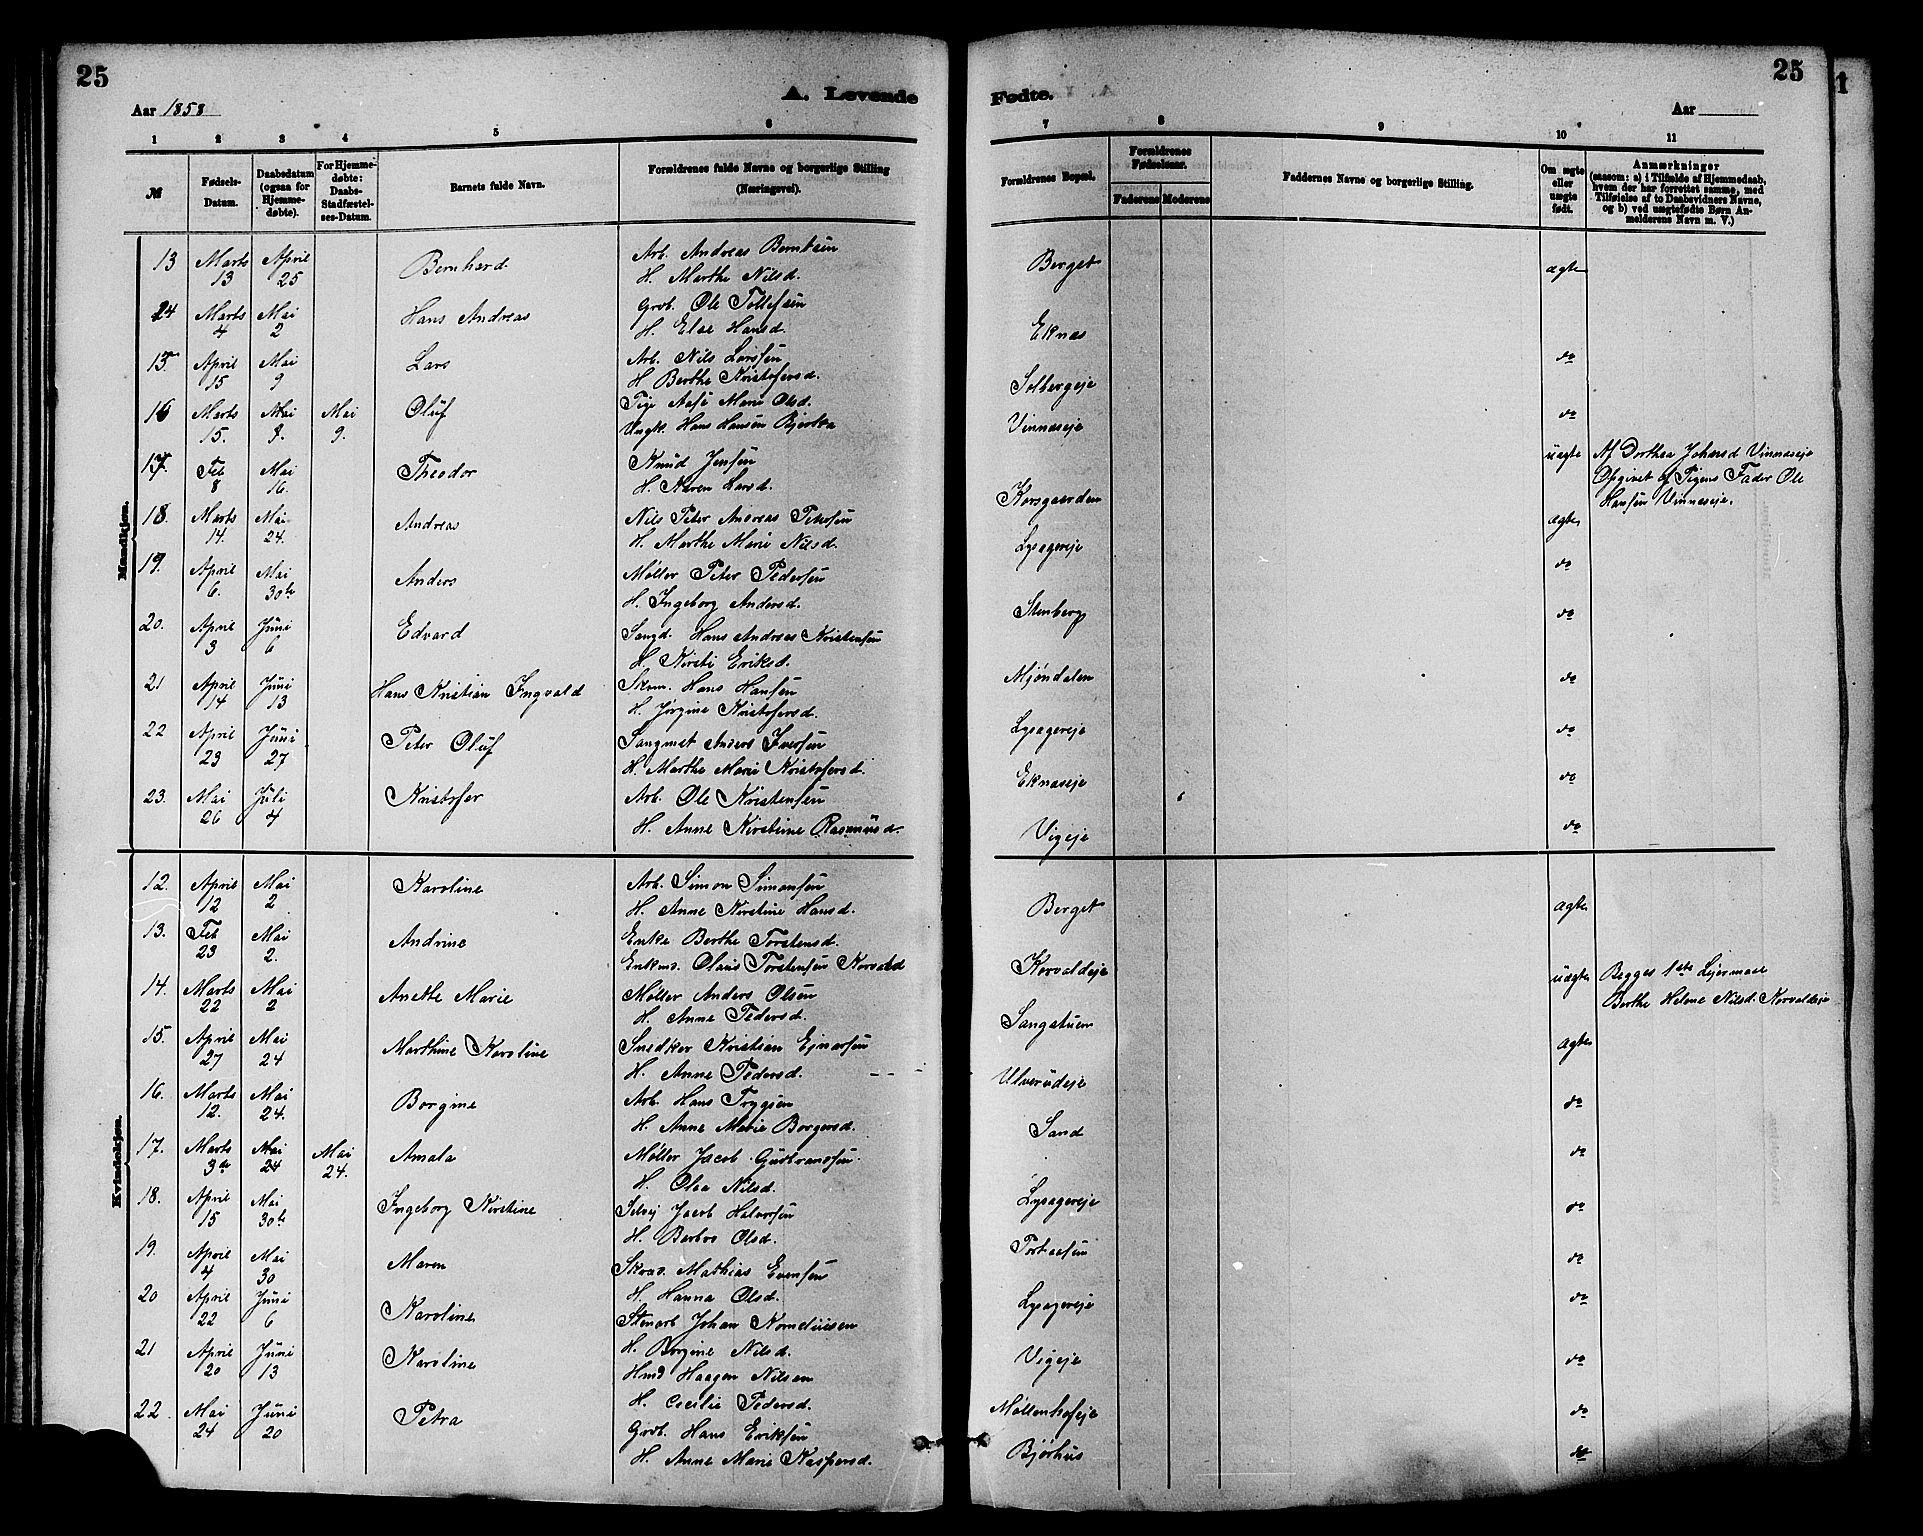 25
Aar 1858
A. Levende
1 2 3 4 5 6
№
Fødsels-Datum.
Daabsdatum (ogsaa for Hjemme-døbte).
For Hjemme-døbte: Daabs-Stadfæstel-ses-Datum.
Barnets fulde Navn.
Forældrenes fulde Navne og borgerlige Stilling (Næringsvei).
Mandkjøn.
13 Marts 13 April 25 Bernhard Arb. Andreas Berntsen
H. Marthe Nilsd.
14 Marts 4 Mai 2 Hans Andreas Grb. Ole Tollefsen
H. Else Hansd.
15. April 15 Mai 9 Lars Arb. Nils Larsen
H Berthe Kristofersd.
16 Marts 15. Mai 9. Mai 9. Oluf Pige Aase Marie Olsd.
Ungk. Hans Hansen Bjerke
17. Feb 8 Mai 16. Theodor Knud Jensen
H. Maren Larsd.
18. Marts 14. Mai 24. Andreas Nils Peter Andreas Petersen
H. Marthe Marie Nilsd.
19. April 6. Mai 30te Anders Møller Peter Pedersen
H. Ingeborg Andersd.
20. April 3 Juni 6 Edvard Sangd. Hans Andreas Kristensen
H. Kirsti Eriksd.
21 April 14 Juni 13 Hans Kristian Ingvald Skrm. Hans Hansen
H. Jørgine Kristofersd.
22 April 23 Juni 27 Peter Oluf Sangmst Anders Iversen
H. Marthe Marie Kristofersd.
23. Mai 26 Juli 4 Kristofer Arb. Ole Kristensen
H. Anne Kirstine Rasmusd.
Kvindekjøn.
12. April 12 Mai 2 Karoline Arb. Simon Simonsen
H. Anne Kirstine Hansd.
13. Feb 23 Mai 2. Andrine Enke Berthe Torstensd.
Enkmd. Olaus Torstensen Korvald
14. Marts 22 Mai 2 Anette Marie Møller Anders Olsen
H. Anne Pedersd.
15. April 27 Mai 24 Marthine Karoline Snedker Kristian Ejnarsen
H. Anne Pedersd.
16. Marts 12. Mai 24. Borgine Arb. Hans Trygsen
H. Anne Marie Borgersd.
17. Marts 3de Mai 24 Mai 24. Amala Møller Jacob Gudbrandsen
H. Olea Nilsd.
18. April 15 Mai 30te Ingeborg Kirstine Selvej Jacob Halvorsen
H. Berbro Olsd.
19. April 4 Mai 30 Maren Skræd. Mathias Evensen
H. Hanna Olsd.
20 April 22 Juni 6 Karoline Stenarb Johan Korneliusen
H. Borgine Nilsd.
21 April 20 Juni 13 Karoline Hmd Haagen Nilsen
H. Cecilie Pedersd.
22 Mai 24 Juni 20 Petra Grb. Hans Eriksen
H. Anne Marie Kaspersd.
25
1
Fødte.
Aar
7 8 9 10 11
Forældrenes Bopæl.
Forældrenes Fødselsaar.
Faderens Moderens
Faddernes Navne og borgerlige Stilling.
Om ægte eller uægte født.
Anmærkninger
(saasom: a) i Tilfælde af Hjemmedaab, hvem der har forrettet samme, med Tilføielse af to Daabsvidners Navne, og b) ved uægtefødte Børn Anmelderens Navn m. V.)
Berget ægte
Eknes
do
Solbergeje
do
Vinnæseje
uægte Af Dorthea Johansd Vinnæseje
Opgivet af Pigens Fader Ole
Hansen Vinnæseje.
Korsgaarden
ægte
Lysagereje
do
Stenberg do
Mjøndalen do
Lysagereje do
Eknæseje do
Vigeje do
Berget ægte
Korvaldeje uægte Begges 1ste Lejermaal
Berthe Helene Nilsd. Korvaldeje
Sangstuen
ægte
Ulverudeje
do
Sand
do
Lysagereje do
Portaasen do
Lysagereje do
Vigeje do
Møllenhofeje do
Bjørhus do